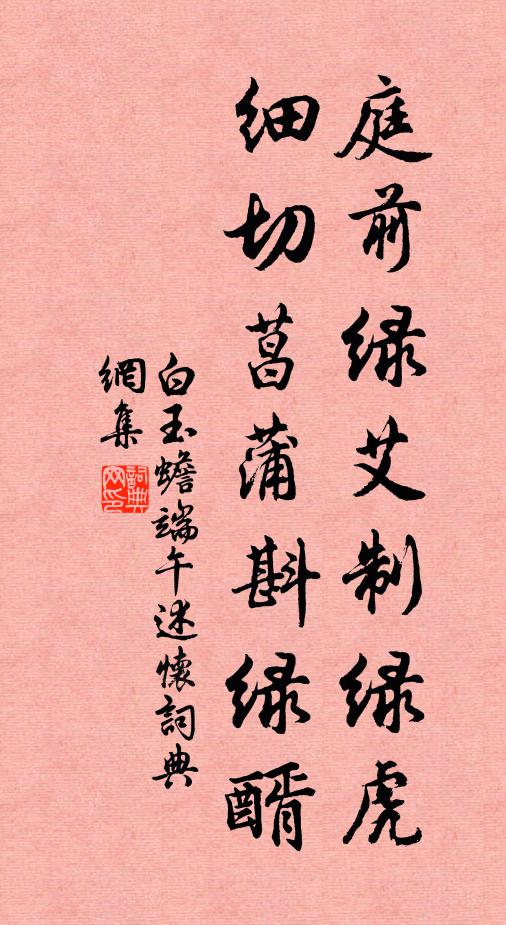 庭前绿艾制绿虎
细切菖蒲斟绿醑
白玉蟾端午述懷詞典
網集
詞典
网印